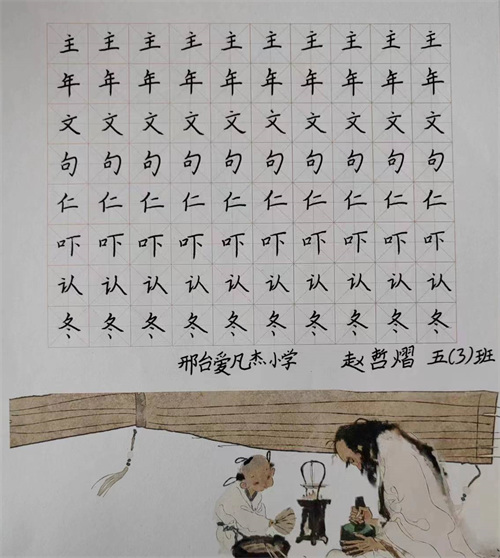 主主主主主主主主主主
年年年年年年年年年年
文文文文文文文文文文
句句句句句句句句句句
仁仁仁仁仁仁仁仁仁仁
吓吓吓吓吓吓吓吓吓吓
认认认认认认认认认认
冬冬冬冬冬冬冬冬冬冬
邢台爱凡杰小学 赵哲熠 五(3)班